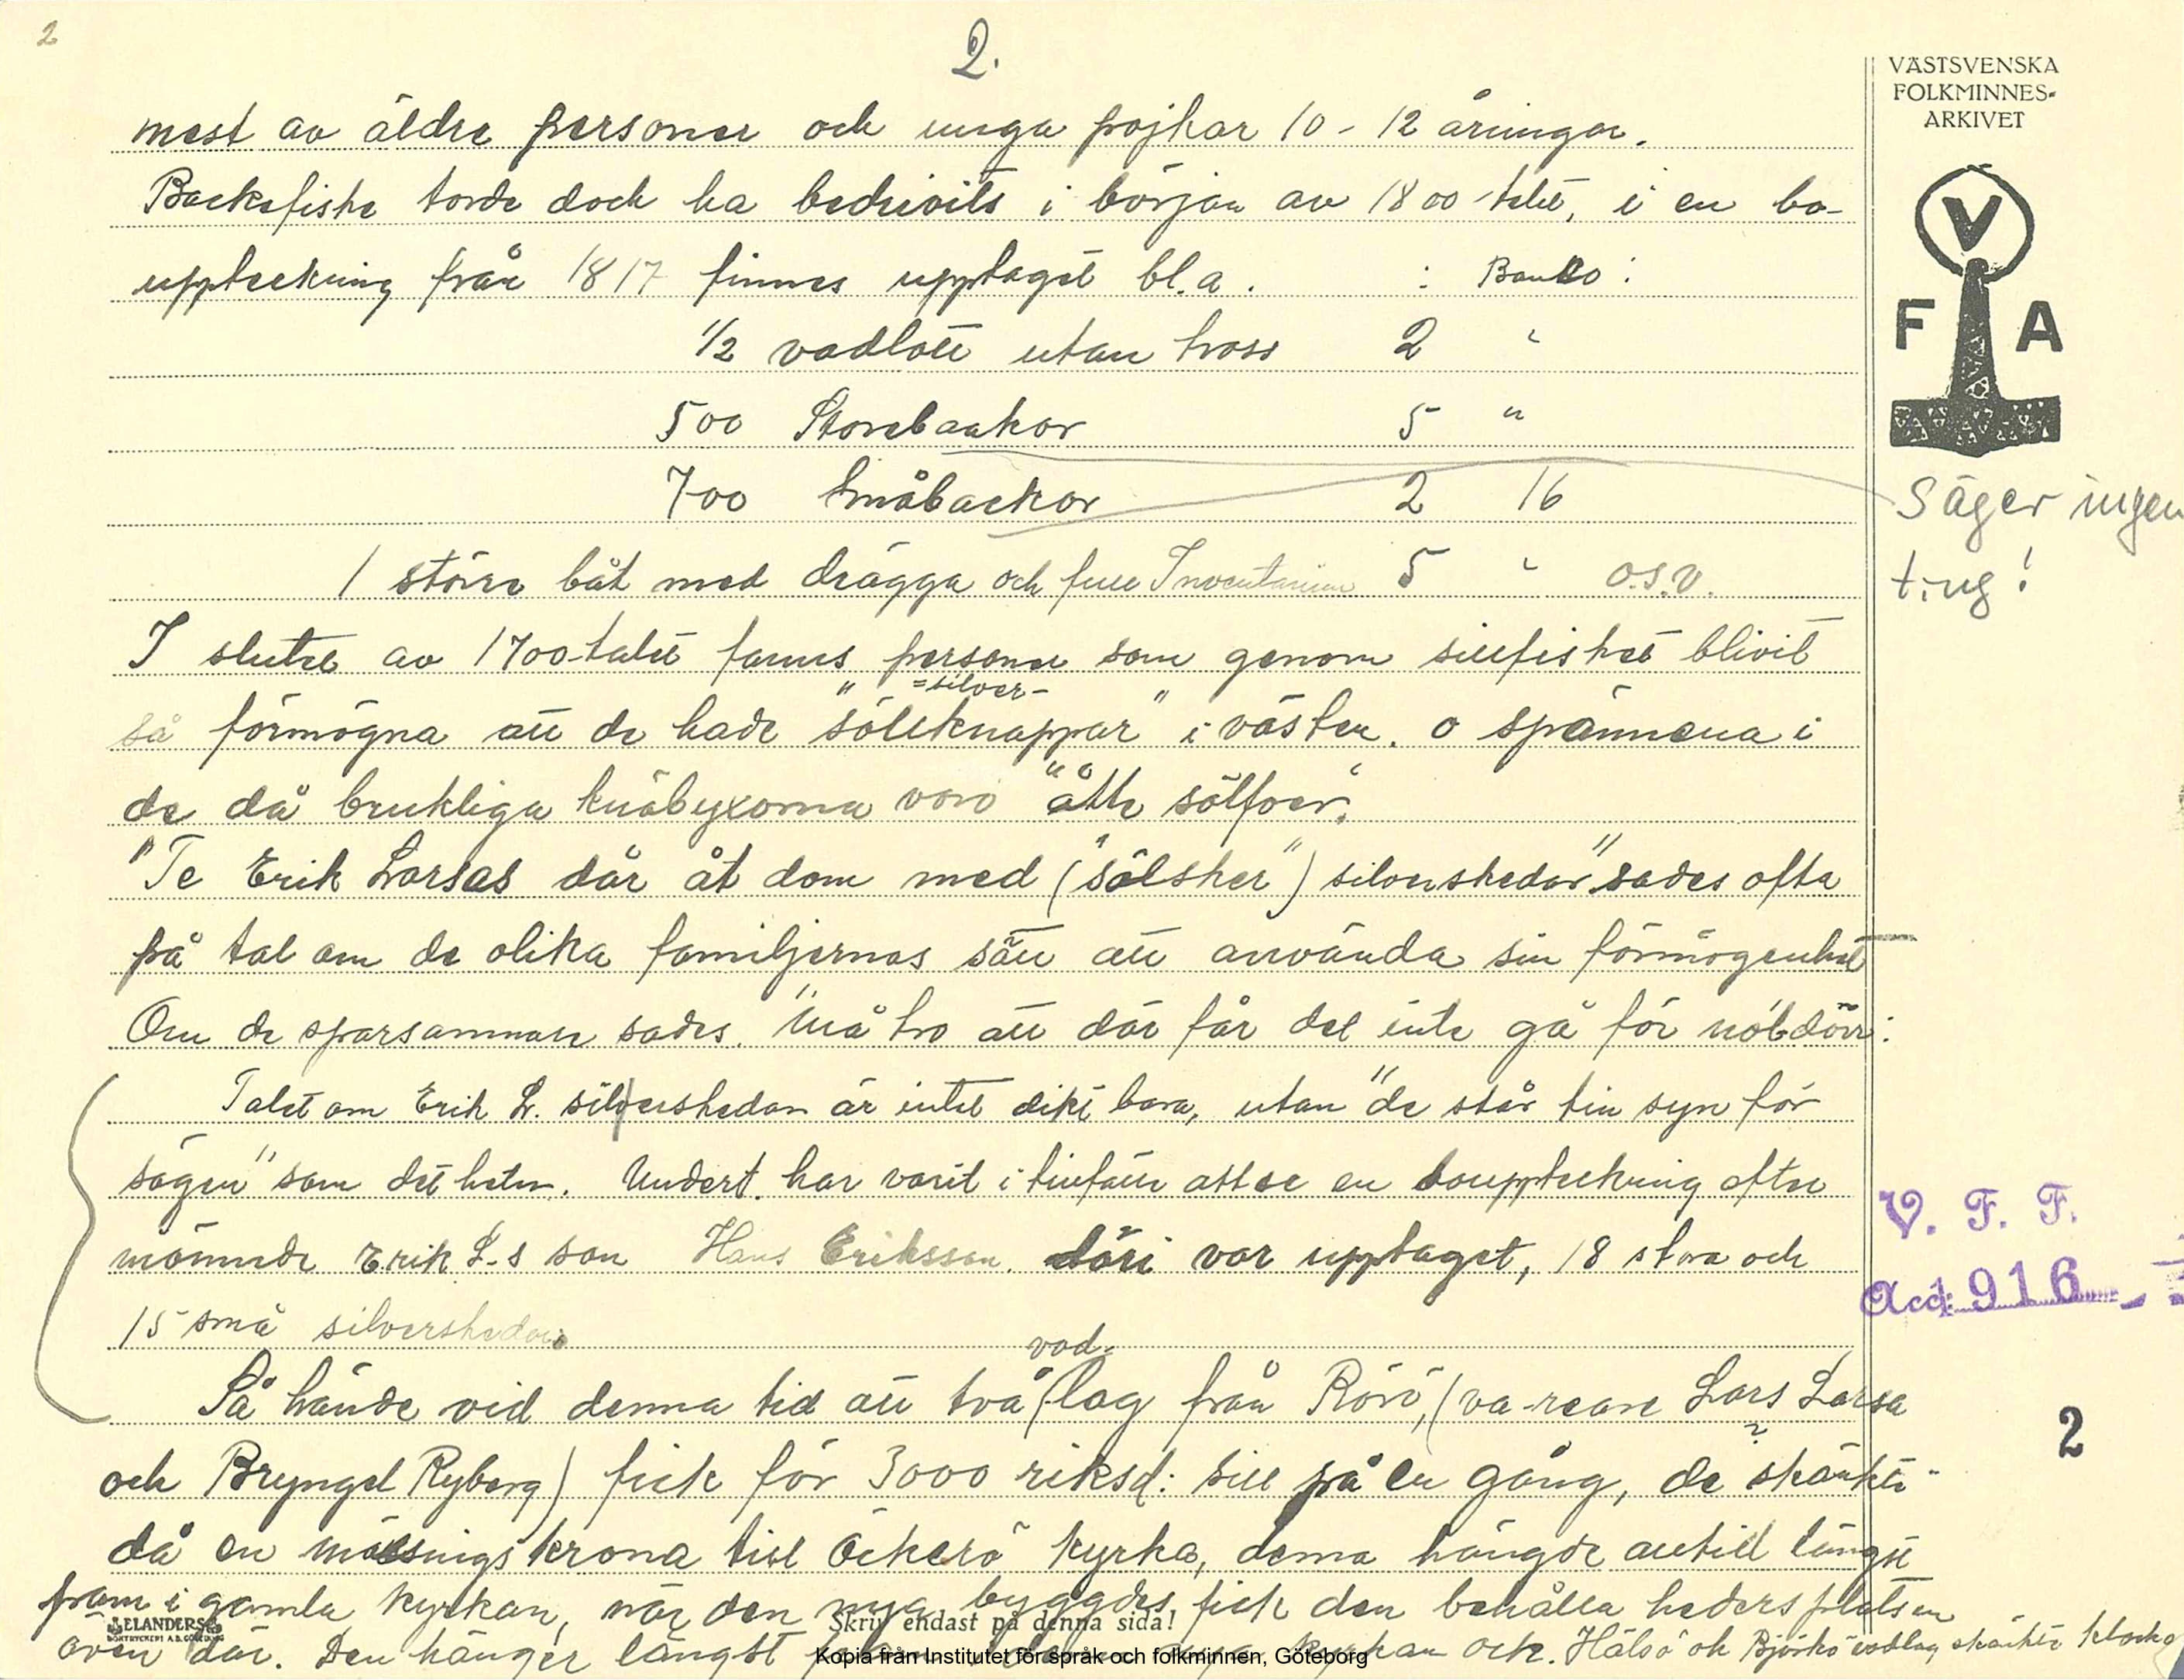 2
2.
VÄSTSVENSKA
FOLKMINNES-
ARKIVET
V
F A
mest av äldre personer och unga pojkar 10-12 åringar.
Backefiske torde dock ha bedrivits i början av 1800-talet, i en bo-
uppteckning från 1817 finnes upptaget bl.a. : Banko :
1/2 vadlott utan tross 2 "
500 Storebackor 5 "
700 Småbackor 2 16
Säger ingen
ting!
1 större båt med drägga och full Inventarium 5 " o.s.v.
I slutet av 1700-talet fanns personer som genom sillfisket blivit
=silver-
så förmögna att de hade "sölleknappar" i västen. o spännena i
de då brukliga knäbyxorna voro "åtte sölfver".
"Te Erik Larsas där åt dom med ("sölsker") silverskedar" sades ofta
på tal om de olika familjernas sätt att använda sin förmögenhet
Om de sparsammare sades. "må tro att där får det inte gå för
Talet om Erik L. silverskedar är intet dikt bara, utan "de står tin syn för
sägen" som det heter. Undert. har varit i tillfälle att se en bouppteckning efter
nämnde Erik L-s son Hans Eriksson. däri var upptaget, 18 stora och
15 små silverskedar.
V. F. F.
Acc: 916
vad-
Så hände vid denna tid att två lag från Rörö, (va-reare Lars Larsa
och Bryngel Ryberg) fick för 3000 riksd: sill på en gång, de skänkte
2
då en mässingskrona till Öckerö kyrka, denna hängde alltid längst
fram i gamla kyrkan, när den nya byggdes fick den behålla hedersplatsen
ELANDERS
Skriv endast på denna sida!
även där. Den hänger längst kyrkan ock. Hälsö ok Björkö vadlag skänkte
Kopia från Institutet för språk och folkminnen, Göteborg